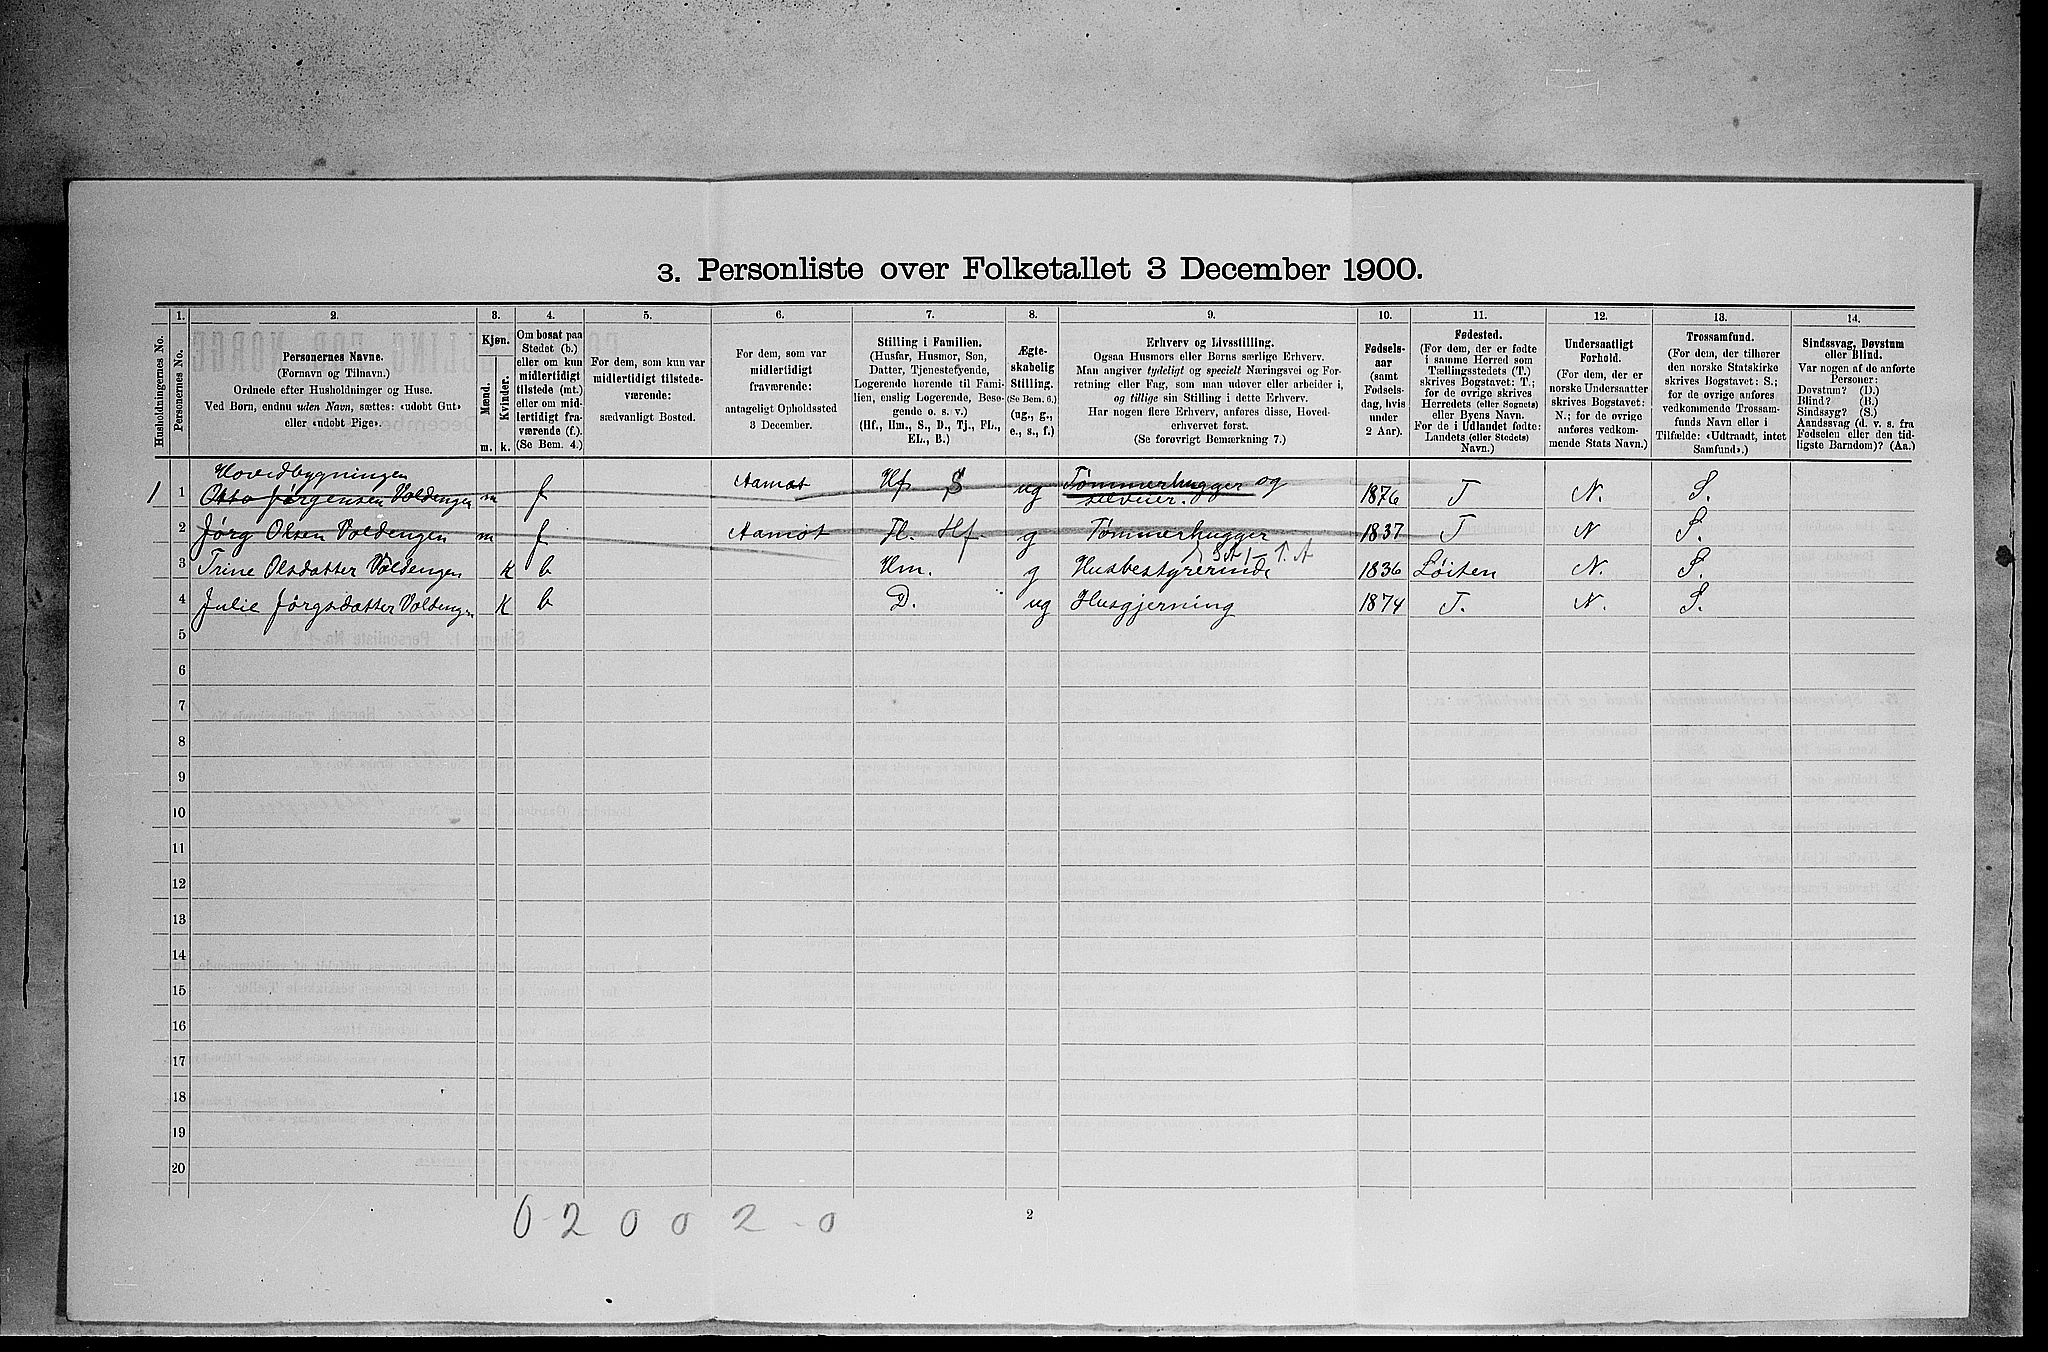 3. Personliste over Folketallet 3 December 1900.
1. 2. 3. 4. 5. 6. 7. 8. 9. 10. 11. 12. 13. 14.
Husholdningernes No.
Personernes No.
Personernes Navne.
(Fornavn og Tilnavn.)
Ordnede efter Husholdninger og Huse.
Ved Børn, endnu uden Navn, sættes: «udøbt Gut»
eller «udøbt Pige».
Kjøn.
Mænd.
Kvinder.
m. k.
Om bosat paa
Stedet (b.)
eller om kun
midlertidigt
tilstede (mt.)
eller om mid-
lertidigt fra-
værende (f.).
(Se Bem. 4.)
For dem, som kun var
midlertidigt tilstede-
værende:
sædvanligt Bosted.
For dem, som var
midlertidigt
fraværende:
antageligt Opholdssted
3 December.
Stilling i Familien.
(Husfar, Husmor, Søn,
Datter, Tjenestetyende,
Logerende hørende til Fami-
lien, enslig Logerende, Besø-
gende o. s. v.)
(Hf., Hm., S., D., Tj., FL.,
EL., B.)
Ægte-
skabelig
Stilling.
(Se Bem. 6.)
(ug., g.,
e., s., f.)
Erhverv og Livsstilling.
Ogsaa Husmors eller Børns særlige Erhverv.
Man angiver tydeligt og specielt Næringsvei og For-
retning eller Fag, som man udøver eller arbeider i,
og tillige sin Stilling i dette Erhverv.
Har nogen flere Erhverv, anføres disse, Hoved-
erhvervet først.
(Se forøvrigt Bemærkning 7.)
Fødsels-
aar
(samt
Fødsels-
dag, hvis
under
2 Aar).
Fødested.
(For dem, der er fødte
i samme Herred som
Tællingsstedets (T.)
skrives Bogstavet: T.;
for de øvrige skrives
Herredets (eller Sognets)
eller Byens Navn.
For de i Udlandet fødte:
Landets (eller Stedets)
Navn.)
Undersaatligt
Forhold.
(For dem, der er
norske Undersaatter
skrives Bogstavet:
N.; for de øvrige
anføres vedkom-
mende Stats Navn.)
Trossamfund.
(For dem, der tilhører
den norske Statskirke
skrives Bogstavet: S.;
for de øvrige anføres
vedkommende Trossam-
funds Navn eller i
Tilfælde: «Udtraadt, intet
Samfund».)
Sindssvag, Døvstum
eller Blind.
Var nogen af de anførte
Personer:
Døvstum? (D.)
Blind? (B.)
Sindssyg? (S.)
Aandssvag (d. v. s. fra
Fødselen eller den tid-
ligste Barndom)? (Aa.)
Hovedbygningen
1 1 Otto Jørgensen Voldengen m f Aamot Hf S ug Tømmerhugger og 1876 T N. S.
selveier.
2 Jørg Olsen Voldengen m f Aamot Fl. Hf. g Tømmerhugger 1837 T N S.
3 Trine Olsdatter Voldengen K b Hm. g Husbestyrerinde 1836 Løiten N. S.
4 Julie Jørgsdatter Voldengen K b D. ug Husgjerning 1874 T. N. S.
5
6
7
8
9
10
11
12
13
14
15
16
17
18
19
20
0-2 0 0 2-0
2